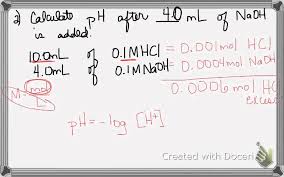 2) Calculate pH after 4.0 mL of NaOH
is added.
10.0mL of 0.1M HCl = 0.001 mol HCl
4.0mL of 0.1M NaOH = 0.0004 mol NaOH
M = mol
L
0.0006 mol HCl
excess
pH = -log [H+]
Created with Doceri